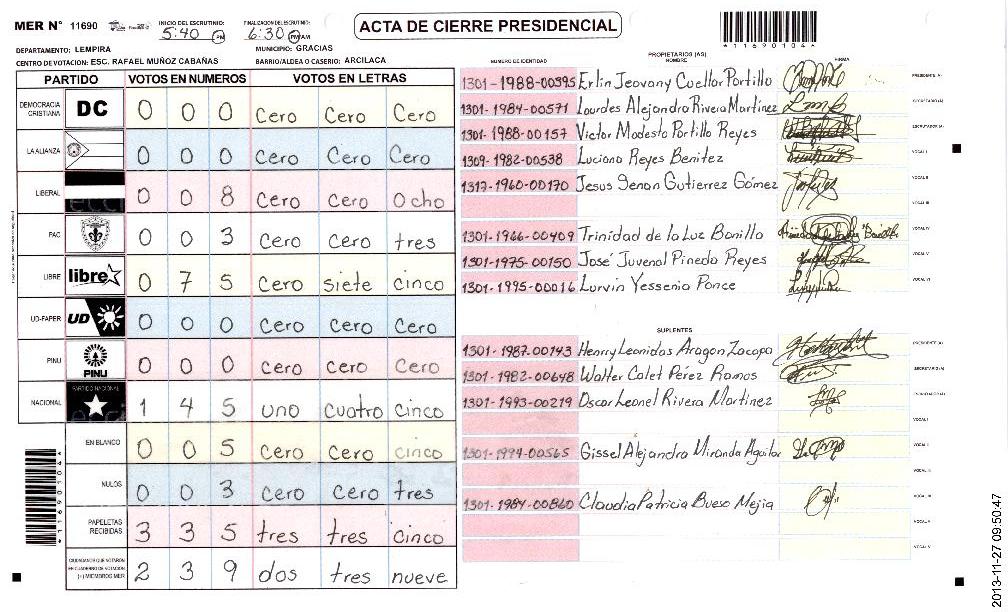 MER N° 11690
INICIO DEL ESCRUTINIO: 5:40 PM
FINALIZACION DEL ESCRUTINIO: 6:30 PM AM
ACTA DE CIERRE PRESIDENCIAL
11690104
DEPARTAMENTO: LEMPIRA
MUNICIPIO: GRACIAS
CENTRO DE VOTACION: ESC. RAFAEL MUÑOZ CABAÑAS
BARRIO/ALDEA O CASERIO: ARCILACA
PARTIDO VOTOS EN NUMEROS VOTOS EN LETRAS
DEMOCRACIA CRISTIANA DC 0 0 0 Cero Cero Cero
LA ALIANZA 0 0 0 Cero Cero Cero
LIBERAL 0 0 8 Cero Cero Ocho
PAC 0 0 3 Cero Cero tres
LIBRE libre 0 7 5 Cero siete cinco
UD-FAPER UD 0 0 0 Cero Cero Cero
PINU PINU 0 0 0 Cero Cero Cero
NACIONAL PARTIDO NACIONAL 1 4 5 uno cuatro cinco
EN BLANCO 0 0 5 Cero Cero cinco
NULOS 0 0 3 Cero Cero tres
PAPELETAS RECIBIDAS 3 3 5 tres tres cinco
CIUDADANOS QUE VOTARON EN CUADERNO DE VOTACION (+) MIEMBROS MER 2 3 9 dos tres nueve
PROPIETARIOS (AS)
NUMERO DE IDENTIDAD NOMBRE FIRMA
1301-1988-00395 Erlin Jeovany Cuellar Portillo PRESIDENTE (A)
1301-1984-00571 Lourdes Alejandra Rivera Martinez SECRETARIO (A)
1301-1988-00157 Victor Modesto Portillo Reyes ESCRUTADOR (A)
1309-1982-00538 Luciano Reyes Benitez VOCAL I
1317-1960-00170 Jesus Genan Gutierrez Gómez VOCAL II
VOCAL III
1301-1966-00409 Trinidad de la Luz Bonilla VOCAL IV
1301-1975-00150 José Juvenal Pinedo Reyes VOCAL V
1301-1995-00016 Lurvin Yessenia Ponce VOCAL VI
SUPLENTES
1301-1987-00143 Henry Leonidas Aragon Zacapa PRESIDENTE (A)
1301-1982-00648 Walter Calet Pérez Ramos SECRETARIO (A)
1301-1993-00219 Oscar Leonel Rivera Martinez ESCRUTADOR (A)
VOCAL I
1301-1994-00565 Gissel Alejandra Miranda Aguilar VOCAL II
VOCAL III
1301-1984-00860 Claudia Patricia Bueso Mejia
VOCAL V
11690104
2013-11-27 09:50:47